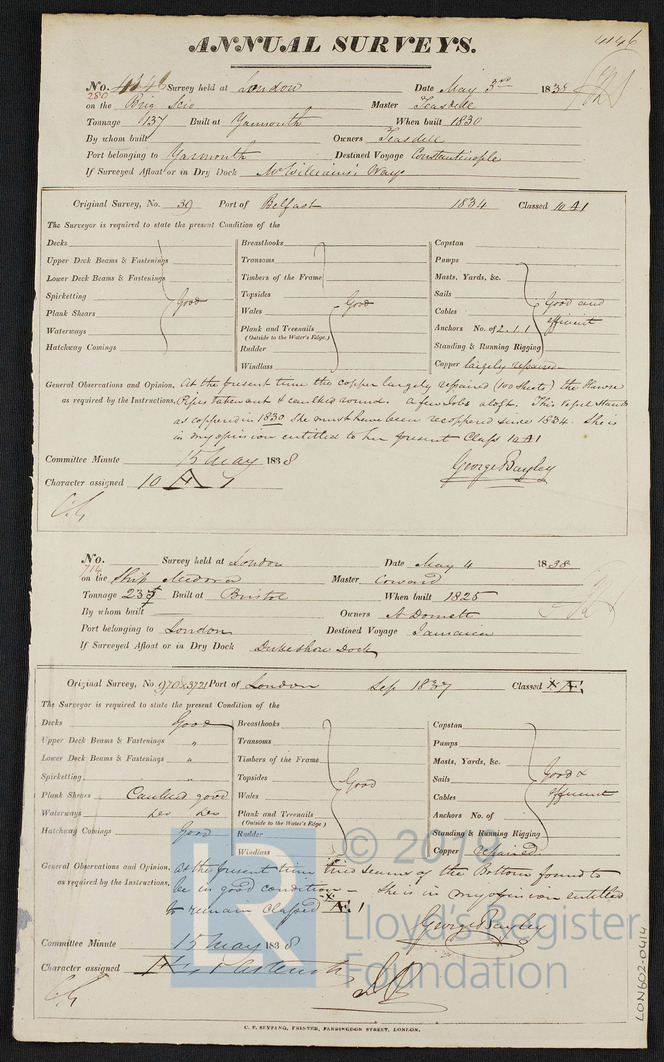 4146
ANNUAL SURVEYS.
No. 4146 Survey held at London Date May 3rd 1838
280
on the Brig Scio Master Teasdell
Tonnage 137 Built at Yarmouth When built 1830
By whom built Owners Teasdell
Port belonging to Yarmouth Destined Voyage Constantinople
If Surveyed Afloat or in Dry Dock McWilliams's Ways
Original Survey, No. 39 Port of Belfast 1834 Classed 10 A1
The Surveyor is required to state the present Condition of the
Decks Breasthooks Capstan
Upper Deck Beams & Fastenings Transoms Pumps
Lower Deck Beams & Fastenings Timbers of the Frame Masts, Yards, &c.
Spirketting Good Topsides Sails Good and
Plank Shears Wales Good Cables efficient
Waterways Plank and Treenails Anchors No. of 2.1.1
(Outside to the Water's Edge.)
Hatchway Comings Rudder Standing & Running Rigging
Windlass Copper largely repaired
General Observations and Opinion, At the present time the copper largely repaired (100 sheets) the Hawse
as required by the Instructions, Pipes taken out & caulked round. A few Jobs aloft. This vessel stands
as coppered in 1830 She must have been recoppered since 1834. She is
in my opinion entitled to her present Class 10 A1
Committee Minute 15 May 1838 George Bayley
Character assigned 10 A 1
No. Survey held at London Date May 4 1838
714
on the Ship Medora Master Coward
Tonnage 235 Built at Bristol When built 1825
By whom built Owners A Dornett
Port belonging to London Destined Voyage Jamaica
If Surveyed Afloat or in Dry Dock Dukeshore Dock
Original Survey, No 970 & 3721 Port of London Sep 1837 Classed * Æ1
The Surveyor is required to state the present Condition of the
Decks Good Breasthooks Capstan
Upper Deck Beams & Fastenings " Transoms Pumps
Lower Deck Beams & Fastenings " Timbers of the Frame Masts, Yards, &c.
Spirketting " Topsides Good Sails Good &
Plank Shears Caulked good Wales Cables efficient
Waterways Do Do Plank and Treenails Anchors No. of
(Outside to the Water's Edge.)
Hatchway Comings Good Rudder Standing & Running Rigging
Windlass Copper repaired
General Observations and Opinion, At the present time tried seams of the Bottom found to
as required by the Instructions, be in good condition – She is in my opinion entitled
to remain Classed * Æ1
George Bayley
Committee Minute 15 May 1838
Character assigned
C. F. SEYFANG, PRINTER, FARRINGDON STREET, LONDON.
LON602-0414
LR
© 2019
Lloyd's Register
Foundation